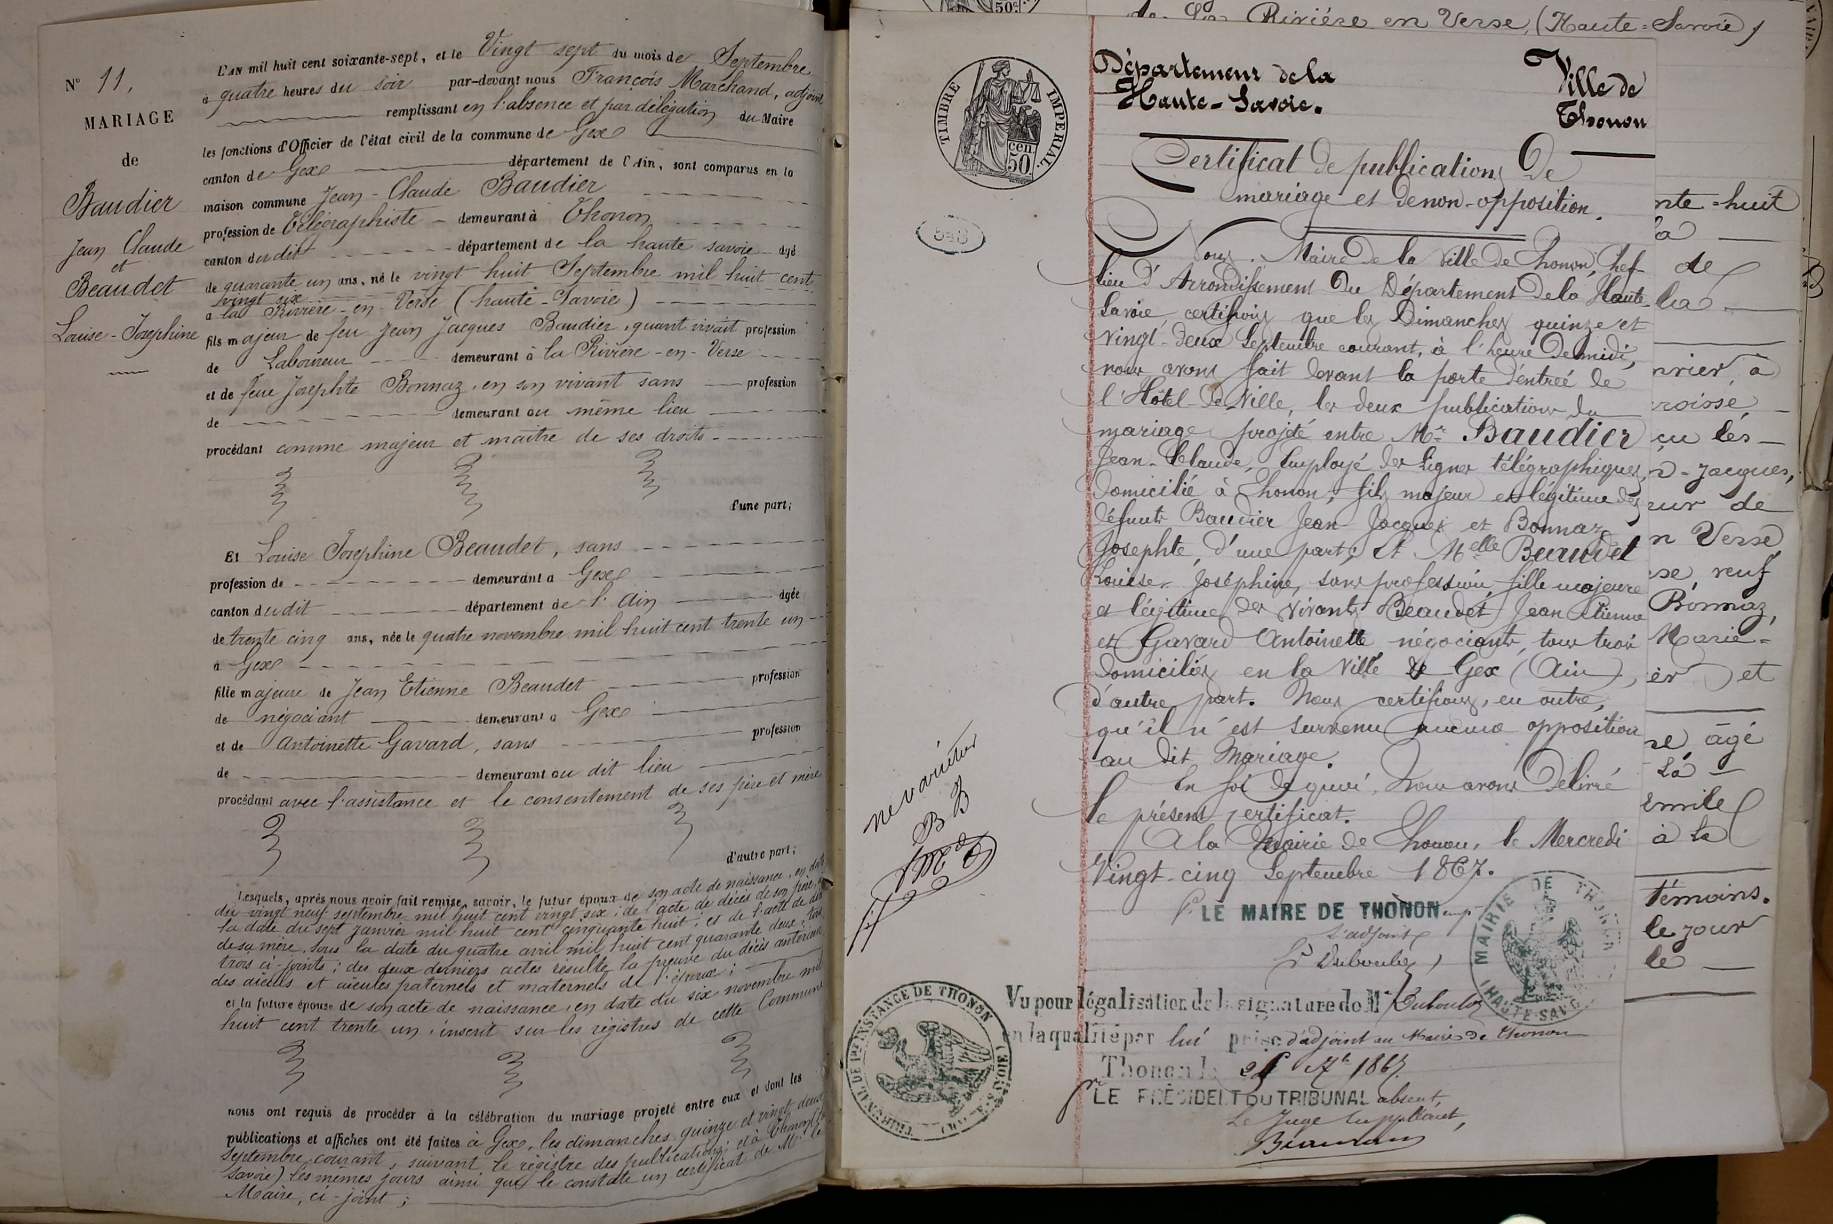 N° 11,
MARIAGE
de
Baudier
Jean Claude
et
Beaudet
Louise-Josephine
L'AN mil huit cent soixante-sept, et le Vingt sept du mois de Septembre
à quatre heures du soir par-devant nous François Marchand, adjoint
remplissant en l'absence et par délégation du Maire
les fonctions d'Officier de l'état civil de la commune de Gex
canton de Gex département de l'Ain, sont comparus en la
maison commune Jean-Claude Baudier
profession de Télégraphiste demeurant à Thonon
canton dudit département de la haute savoie âgé
de quarante un ans, né le vingt huit Septembre mil huit cent
vingt six
à la Rivière-en-Verse (haute-Savoie)
fils majeur de feu Jean Jacques Baudier, quant vivait profession
de Laboureur demeurant à la Rivière-en-Verse
et de feue Josephte Bonnaz, en son vivant sans profession
de demeurant au même lieu
procédant comme majeur et maître de ses droits
d'une part;
Et Louise Josephine Beaudet, sans
profession de demeurant à Gex
canton dudit département de l'Ain âgée
de trente cinq ans, née le quatre novembre mil huit cent trente un
à Gex
fille majeure de Jean Etienne Beaudet profession
de négociant demeurant à Gex
et de Antoinette Gavard, sans profession
de demeurant au dit lieu
procédant avec l'assistance et le consentement de ses père et mère
d'autre part;
Lesquels, après nous avoir fait remise, savoir, le futur époux de son acte de naissance, en date
du vingt neuf septembre mil huit cent vingt six; de l'acte de décès de son père,
la date du sept janvier mil huit cent cinquante huit; et de l'acte de décès
de sa mère, sous la date du quatre avril mil huit cent quarante deux; tous
trois ci-joints; des deux derniers actes résulte la preuve du décès antérieur
des aïeuls et aïeules paternels et maternels de l'époux;
et la future épouse de son acte de naissance, en date du six novembre mil
huit cent trente un, inscrit sur les registres de cette Commune
nous ont requis de procéder à la célébration du mariage projeté entre eux et dont les
publications et affiches ont été faites à Gex, les dimanches quinze et vingt deux
Septembre courant, suivant le registre des publications; et à Thonon (hte
Savoie) les mêmes jours ainsi que le constate un certificat de Mr. le
Maire, ci-joint;
de La Rivière en Verse, (Haute-Savoie)
TIMBRE IMPERIAL.
50 cen
Département de la
Haute-Savoie.
Ville de
Thonon
Certificat de publications De
mariage et de non-opposition.
Nous, Maire de la Ville de Thonon, chef-
lieu d'Arrondissement Du Département De la Haute
Savoie, certifions que les Dimanches quinze et
vingt-deux Septembre courant, à l'heure de midi,
nous avons fait devant la porte d'entrée de
l'Hôtel-de-Ville, les deux publications du
mariage projeté entre Mr. Baudier
Jean-Claude, Employé des lignes télégraphiques,
domicilié à Thonon, fils majeur et légitime des
défunts Baudier Jean-Jacques et Bonnaz
Josephte, d'une part; Et Melle Beaudet
Louise-Joséphine, sans profession, fille majeure
et légitime des vivants Beaudet Jean Etienne
et Gavard Antoinette négociants, tous trois
domiciliés en la Ville de Gex (Ain),
d'autre part. Nous certifions, en outre,
qu'il n'est survenu aucune opposition
au dit Mariage.
En foi de quoi, Nous avons Délivré
le présent certificat.
A la Mairie de Thonon, le Mercredi
Vingt-cinq Septembre 1867.
Pr LE MAIRE DE THONON
l'adjoint
MAIRIE DE THONON (HAUTE-SAVOIE)
ne varietur
TRIBUNAL DE 1RE INSTANCE DE THONON
Vu pour légalisation de la signature de Mr
en la qualité par lui prise d'adjoint au Maire de Thonon
Thonon le 7bre 1867.
Pr LE PRÉSIDENT DU TRIBUNAL absent,
Le Juge suppléant,
nte-huit
la
de
la
nvier, à
roisse,
çu les
n-Jacques,
eur de
n Verse
se, veuf
Bonnaz,
Marie-
er et
re, âgé
La
emile
à La
témoins.
le jour
le